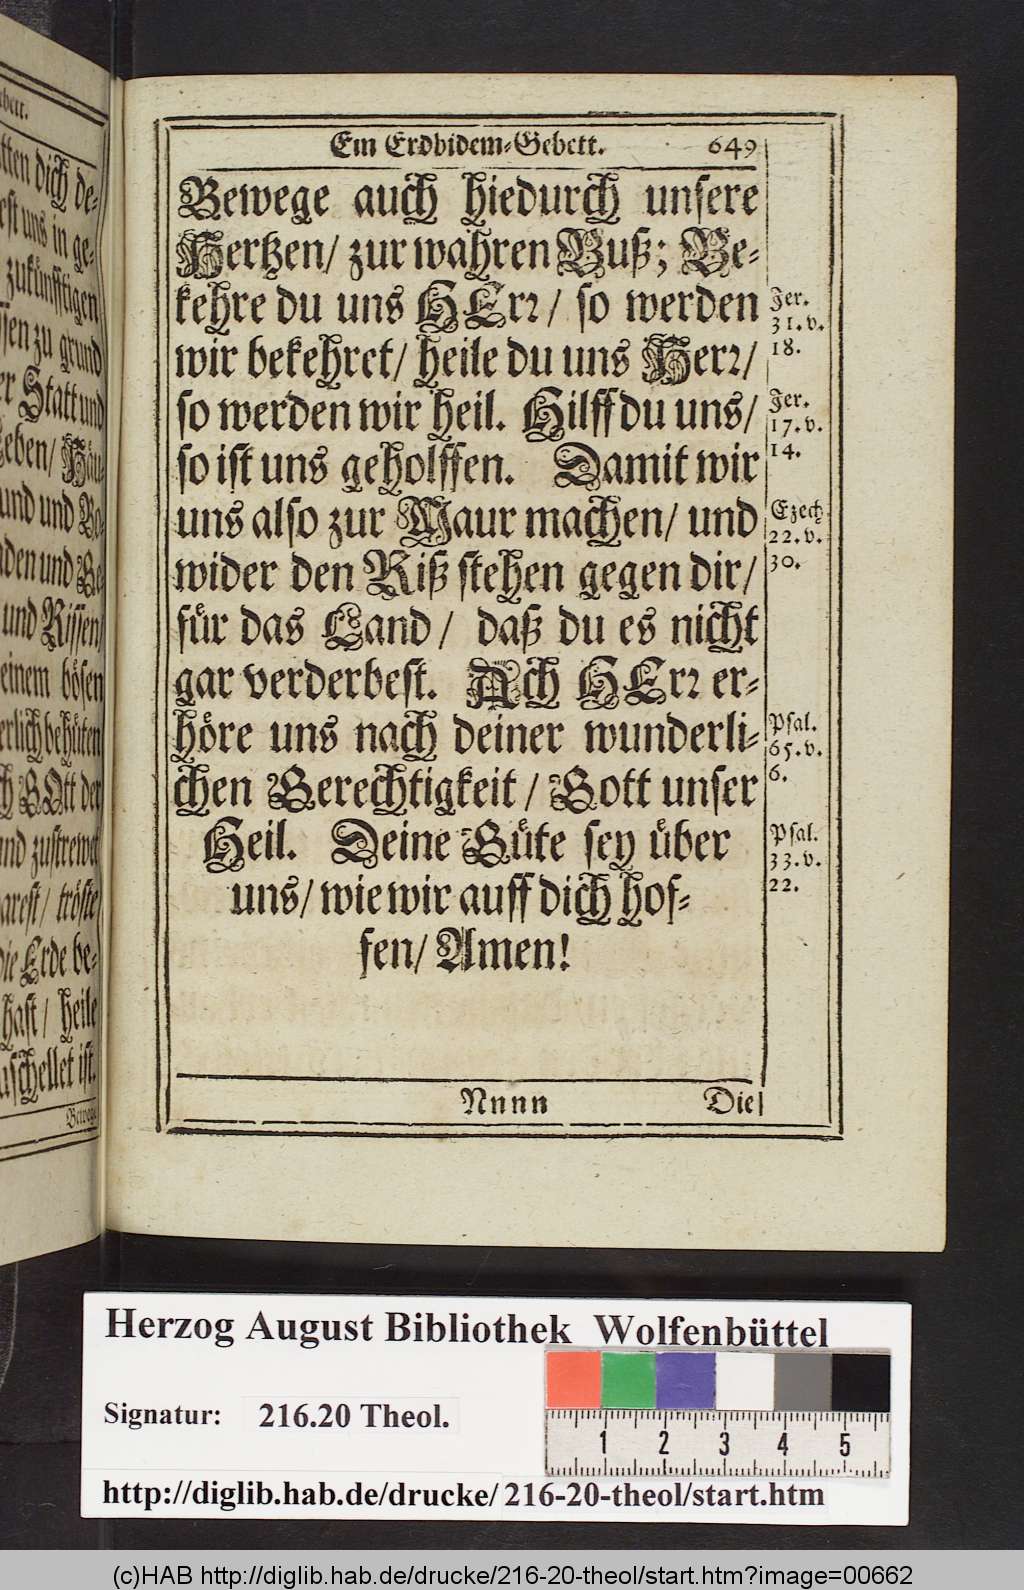 bett.
tten dich de-
est uns in ge-
zukünfftigen
ssen zu grund
er Statt und
geben/ Häu-
und und Bo-
den und Be-
und Rissen/
einem bösen
erlich behüten
ch GOtt der
und zustrewet
arest/ tröste
die Erde be-
hast/ heile
uschellet ist.
Bewege
Ein Erdbidem-Gebett. 649
Bewege auch hiedurch unsere
Hertzen/ zur wahren Buß; Be-
kehre du uns HErr/ so werden
wir bekehret/ heile du uns Herr/
so werden wir heil. Hilff du uns/
so ist uns geholffen. Damit wir
uns also zur Maur machen/ und
wider den Riß stehen gegen dir/
für das Land/ daß du es nicht
gar verderbest. Ach HErr er-
höre uns nach deiner wunderli-
chen Gerechtigkeit/ Gott unser
Heil. Deine Güte sey über
uns/ wie wir auff dich hof-
fen/ Amen!
Jer.
31. v.
18.
Jer.
17. v.
14.
Ezech.
22. v.
30.
Psal.
65. v.
6.
Psal.
33. v.
22.
Nnnn Die
Herzog August Bibliothek Wolfenbüttel
Signatur: 216.20 Theol.
1 2 3 4 5
http://diglib.hab.de/drucke/216-20-theol/start.htm
(c)HAB http://diglib.hab.de/drucke/216-20-theol/start.htm?image=00662